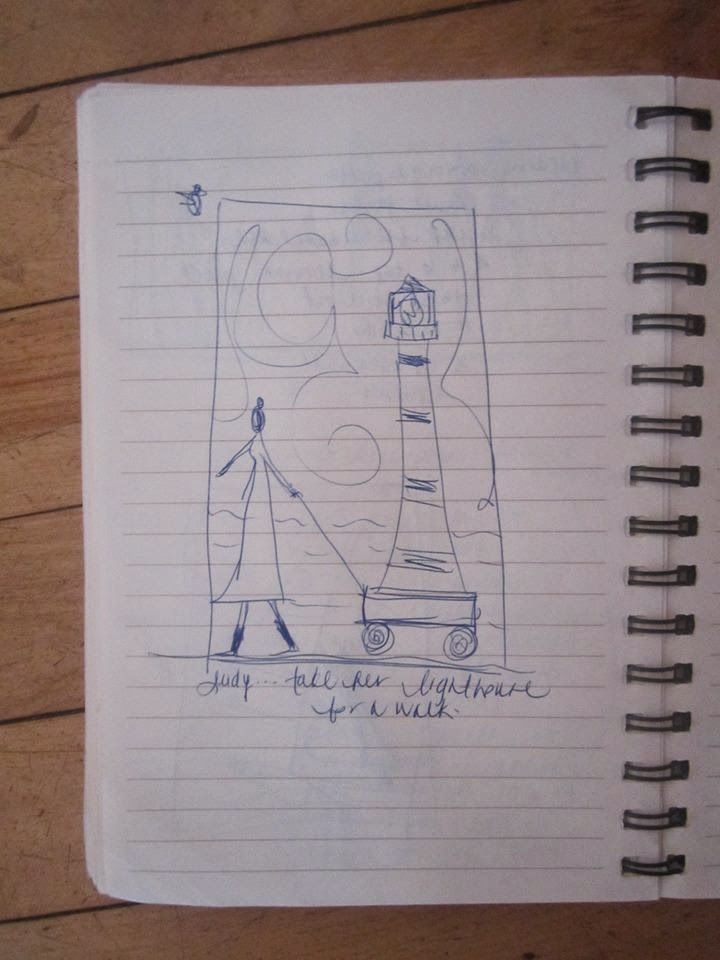 Judy... take her lighthouse
for a walk.